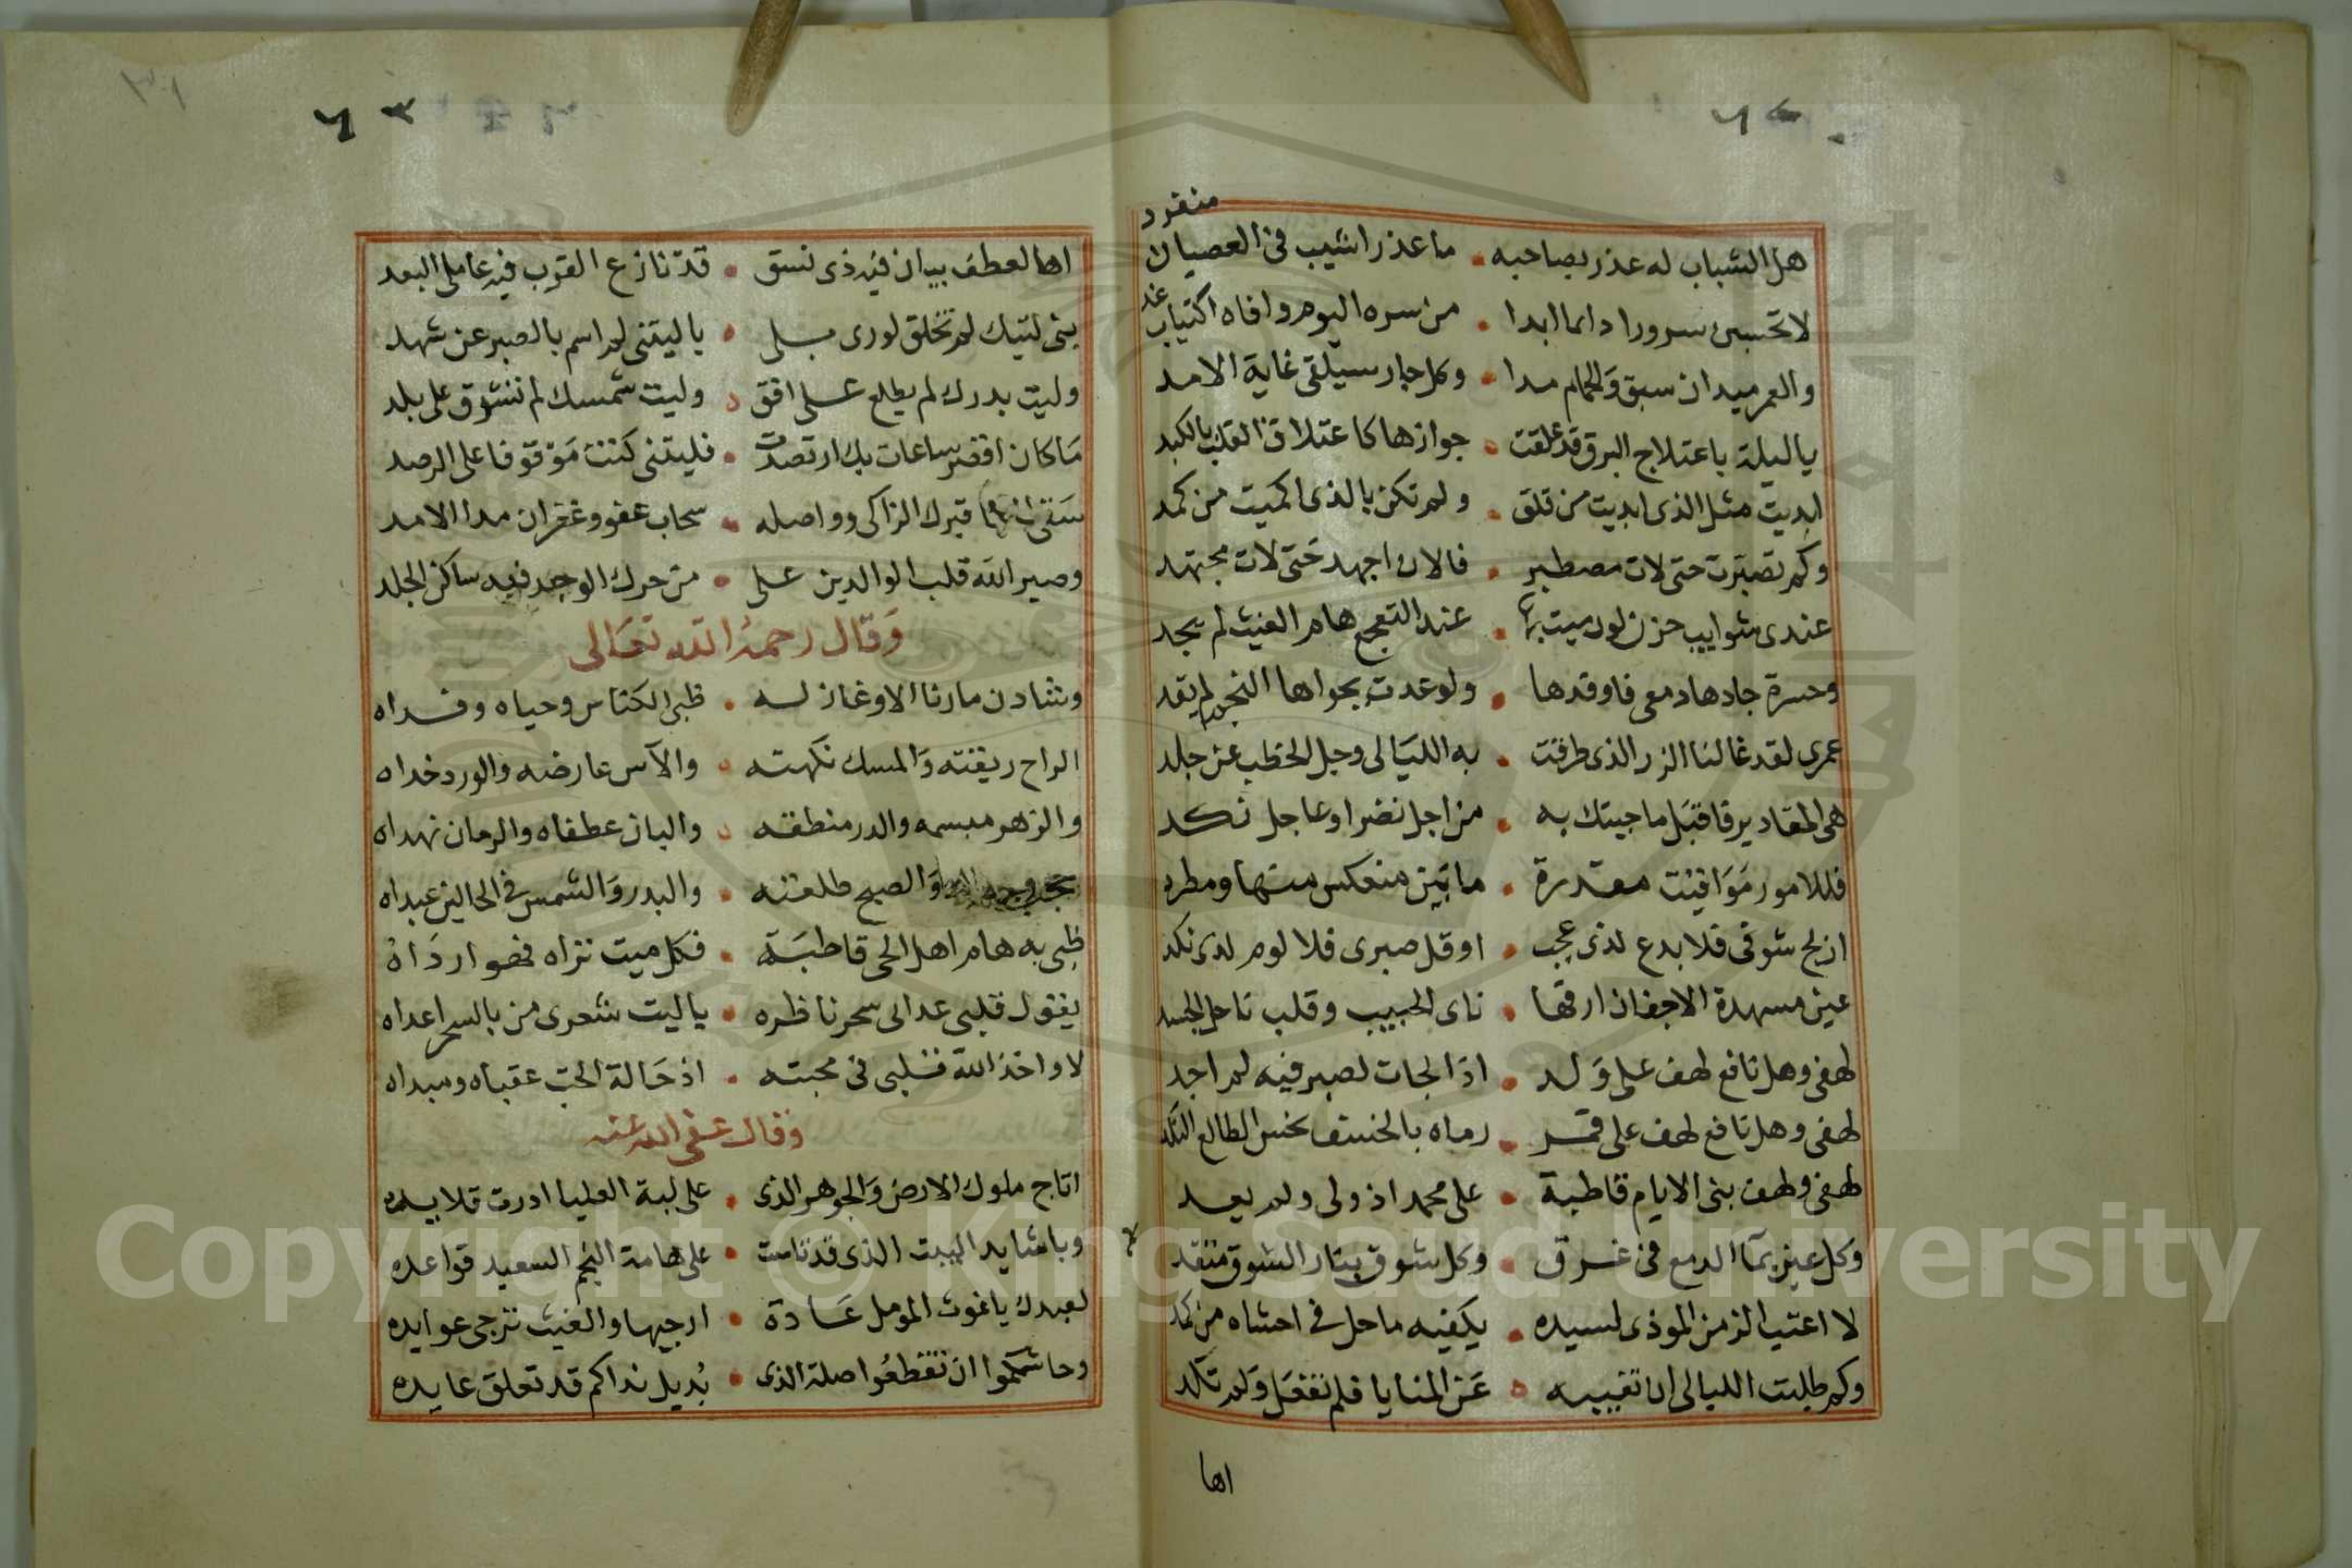 منفرد
هل الشباب له عذر بصاحبه • ما عذر اشيب فى العصيان
لا تحسبن سرورا دائما ابدا • من سره اليوم وافاه اكتياب غد
والعمر ميدان سبق والحمام مدا • وكل جار سيلقى غاية الامد
يا ليلة باعتلاج البرق قد علقت • جوازها كاعتلاق القلب بالكبد
ابديت مثل الذى ابديت من قلق • ولم تكن بالذى اكميت من كمد
وكم تصبرت حتى لات مصطبر • فالان اجهد حتى لات مجتهد
عندى شوابيب حزن لو رميت بها • عند التفجع هام الغيث لم يجد
وحسرة جادها دمعى فاوقدها • ولو عدت بجواها النجم لم يقد
عمرى لقد غالنا الزر الذى طرقت • به الليالى وجل الخطب عن جلد
هى المقادير فاقبل ما جيتك به • من اجل نضر او عاجل نكد
فللامور مواقيت مقدرة • ما بين منعكس منها ومطرد
ان لج شوقى فلا بدع لذى عجب • او قل صبرى فلا لوم لذى نكد
عين مسهدة الاجفان ارقها • ناى الحبيب وقلب ناحل الجسد
لهفى وهل نافع لهف على ولد • اذا لجات لصبر فيه لم اجد
لهفى وهل نافع لهف على قمر • رماه بالخسف نحس الطالع النكد
لهفى ولهف بنى الايام قاطبة • على محمد اذ ولى ولم يعد
وكل عين بما الدمع فى غرق • وكل شوق بنار الشوق متقد
لا اعتب الزمن الموذى لسيده • يكفيه ما حل فى احشاه من كمد
وكم طلبت الليالى ان تغيبه • عن المنايا فلم تفعل ولم تكد
اها
اها لعطف بيان فيه ذى نسق • قد نازع القرب فيه عامل البعد
بنى ليتك لم تخلق لورى بلى • يا ليتنى لم اسم بالصبر عن شهد
وليت بدرك لم يطلع على افق • وليت شمسك لم تشرق على بلد
ما كان اقصر ساعات بك ارتصدت • فليتنى كنت موقوفا على الرصد
سقى قبرك الزاكى وواصله • سحاب عفو وغفران مدا الامد
وصير الله قلب الوالدين على • من حرك الوجد فيه ساكن الجلد
وقال رحمه الله تعالى
وشادن ما رنا الا وغازله • ظبى الكناس وحياه وفداه
الراح ريقته والمسك نكهته • والآس عارضه والورد خداه
والزهر مبسمه والدر منطقه • والبان عطفاه والرمان نهداه
والصبح طلعته • والبدر والشمس فى الحالين عبداه
ظبى به هام اهل الحى قاطبة • فكل ميت نراه فهو ارداه
يقول قلبى عدانى سحر ناظره • يا ليت شعرى من بالسحر اعداه
لا واخذ الله قلبى فى محبته • اذ حالة الحب عقباه ومبداه
وقال عفى الله عنه
اتاج ملوك الارض والجوهر الذى • على لبة العليا ادرت قلايده
ويا شايد البيت الذى قد تاست • على هامة النجم السعيد قواعده
لعبدك يا غوث المومل عادة • ارجيها والغيث ترجى عوايده
وحاشكموا ان تقطعوا صلة الذى • بذيل نداكم قد تعلق عايده
Copyright © King Saud University